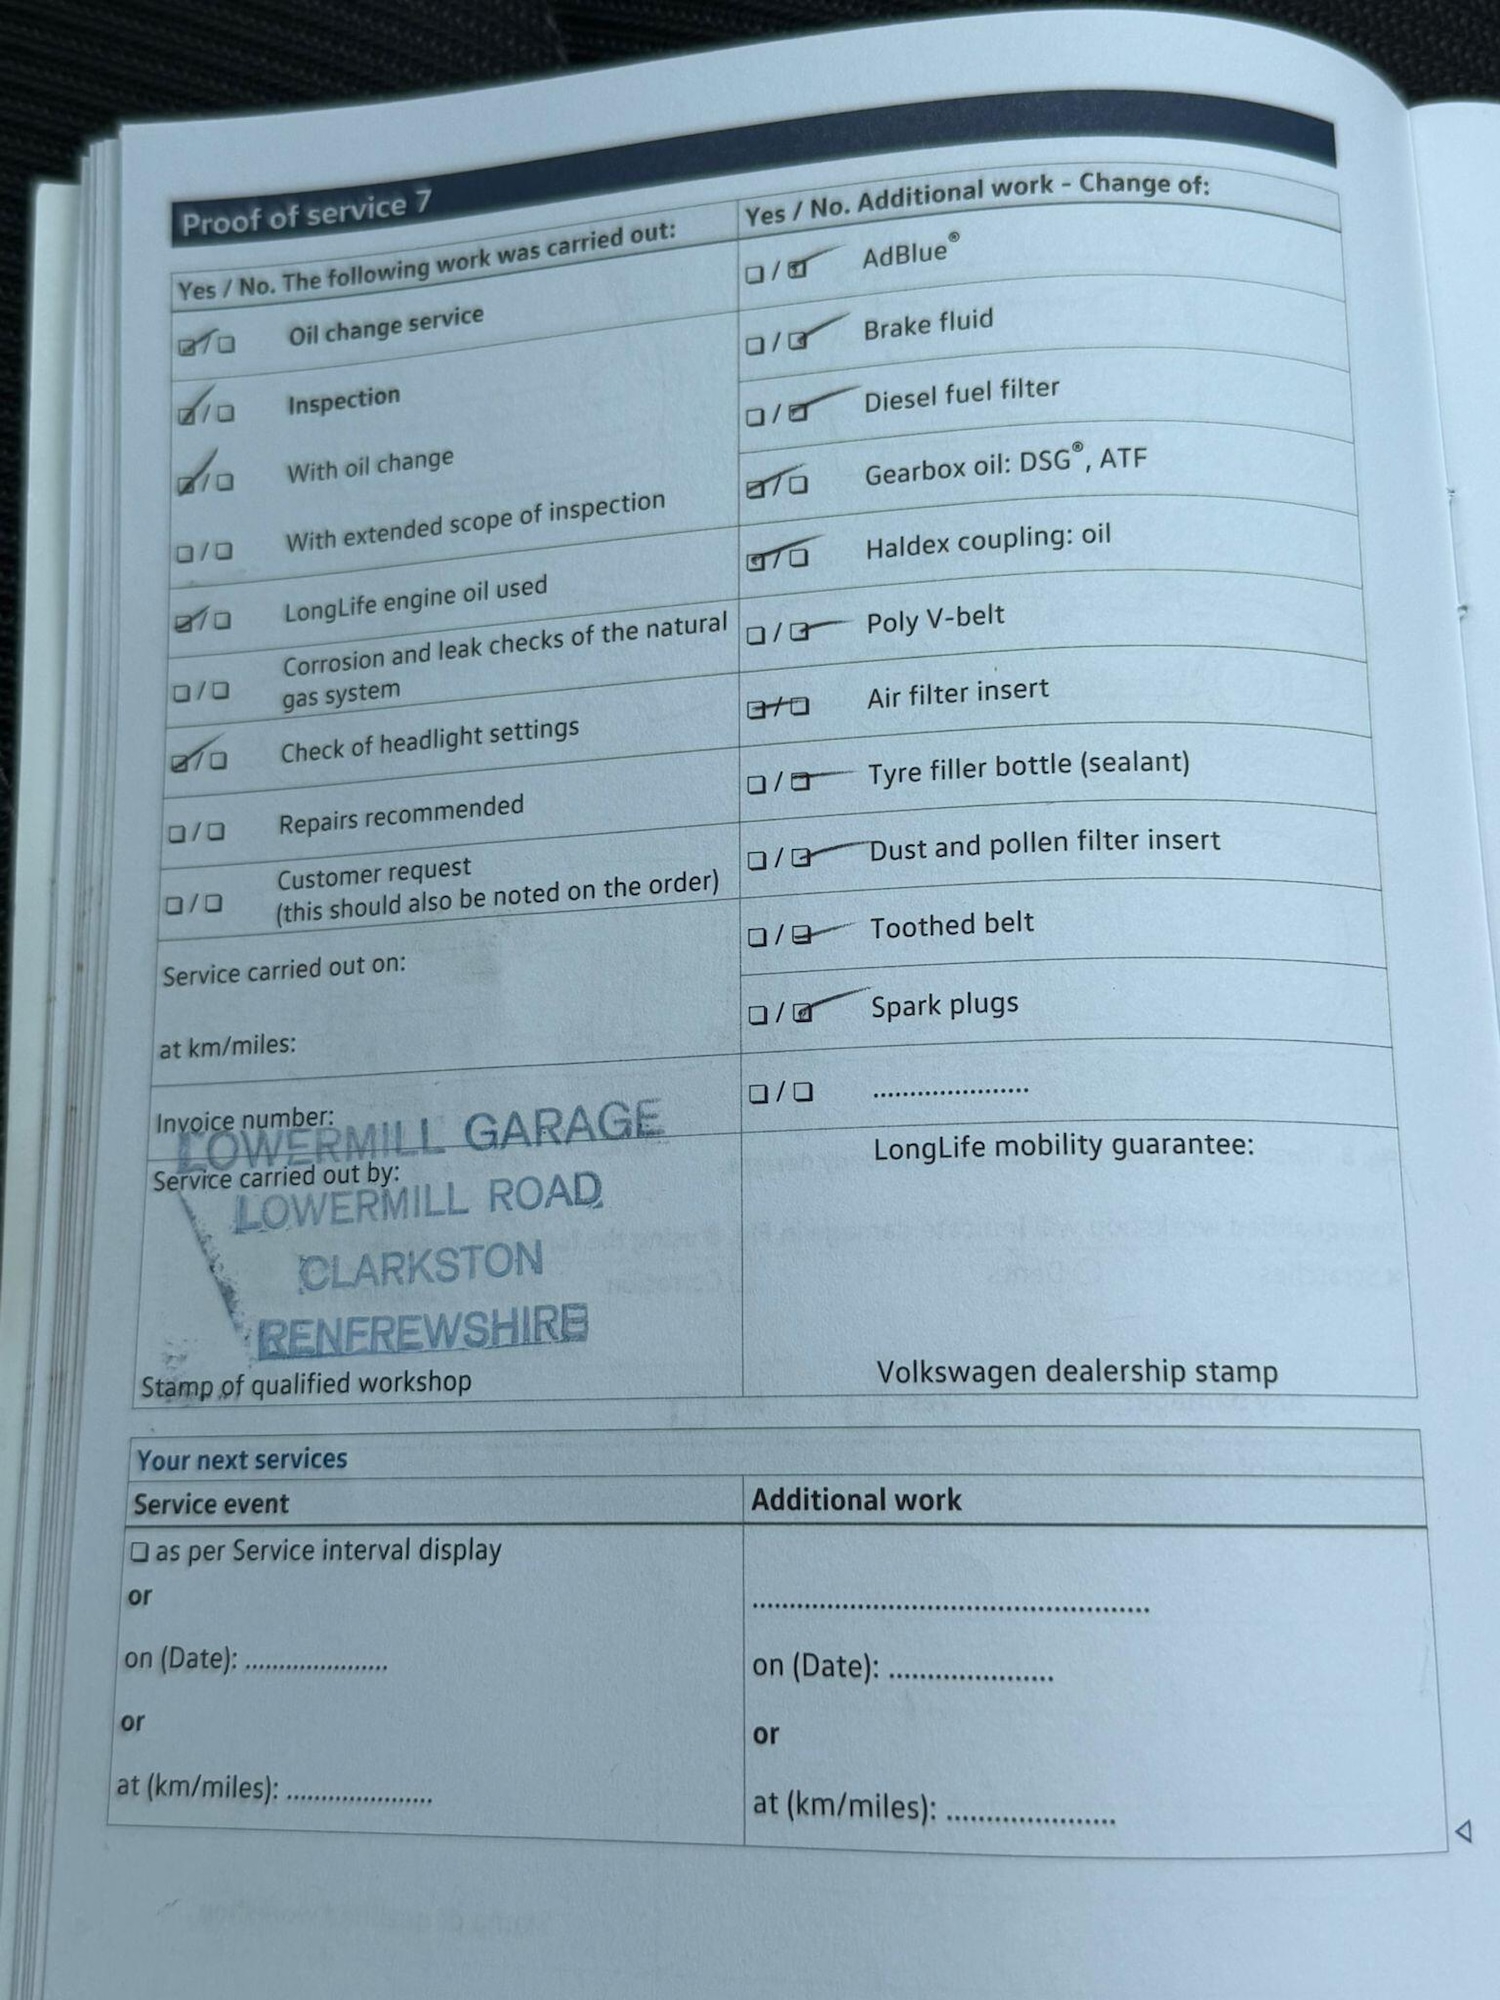 Proof of service 7
Yes / No. The following work was carried out:
☑/☐ Oil change service
☑/☐ Inspection
☑/☐ With oil change
☐/☐ With extended scope of inspection
☑/☐ LongLife engine oil used
☐/☐ Corrosion and leak checks of the natural
gas system
☑/☐ Check of headlight settings
☐/☐ Repairs recommended
☐/☐ Customer request
(this should also be noted on the order)
Service carried out on:
at km/miles:
Invoice number:
LOWERMILL GARAGE
Service carried out by:
LOWERMILL ROAD
CLARKSTON
RENFREWSHIRE
Stamp of qualified workshop
Yes / No. Additional work - Change of:
☐/☑ AdBlue®
☐/☑ Brake fluid
☐/☑ Diesel fuel filter
☑/☐ Gearbox oil: DSG®, ATF
☑/☐ Haldex coupling: oil
☐/☑ Poly V-belt
☑/☐ Air filter insert
☐/☑ Tyre filler bottle (sealant)
☐/☑ Dust and pollen filter insert
☐/☑ Toothed belt
☐/☑ Spark plugs
☐/☐ .....................
LongLife mobility guarantee:
Volkswagen dealership stamp
Your next services
Service event
☐ as per Service interval display
or
on (Date): .....................
or
at (km/miles): .....................
Additional work
.....................................................
on (Date): .....................
or
at (km/miles): .....................